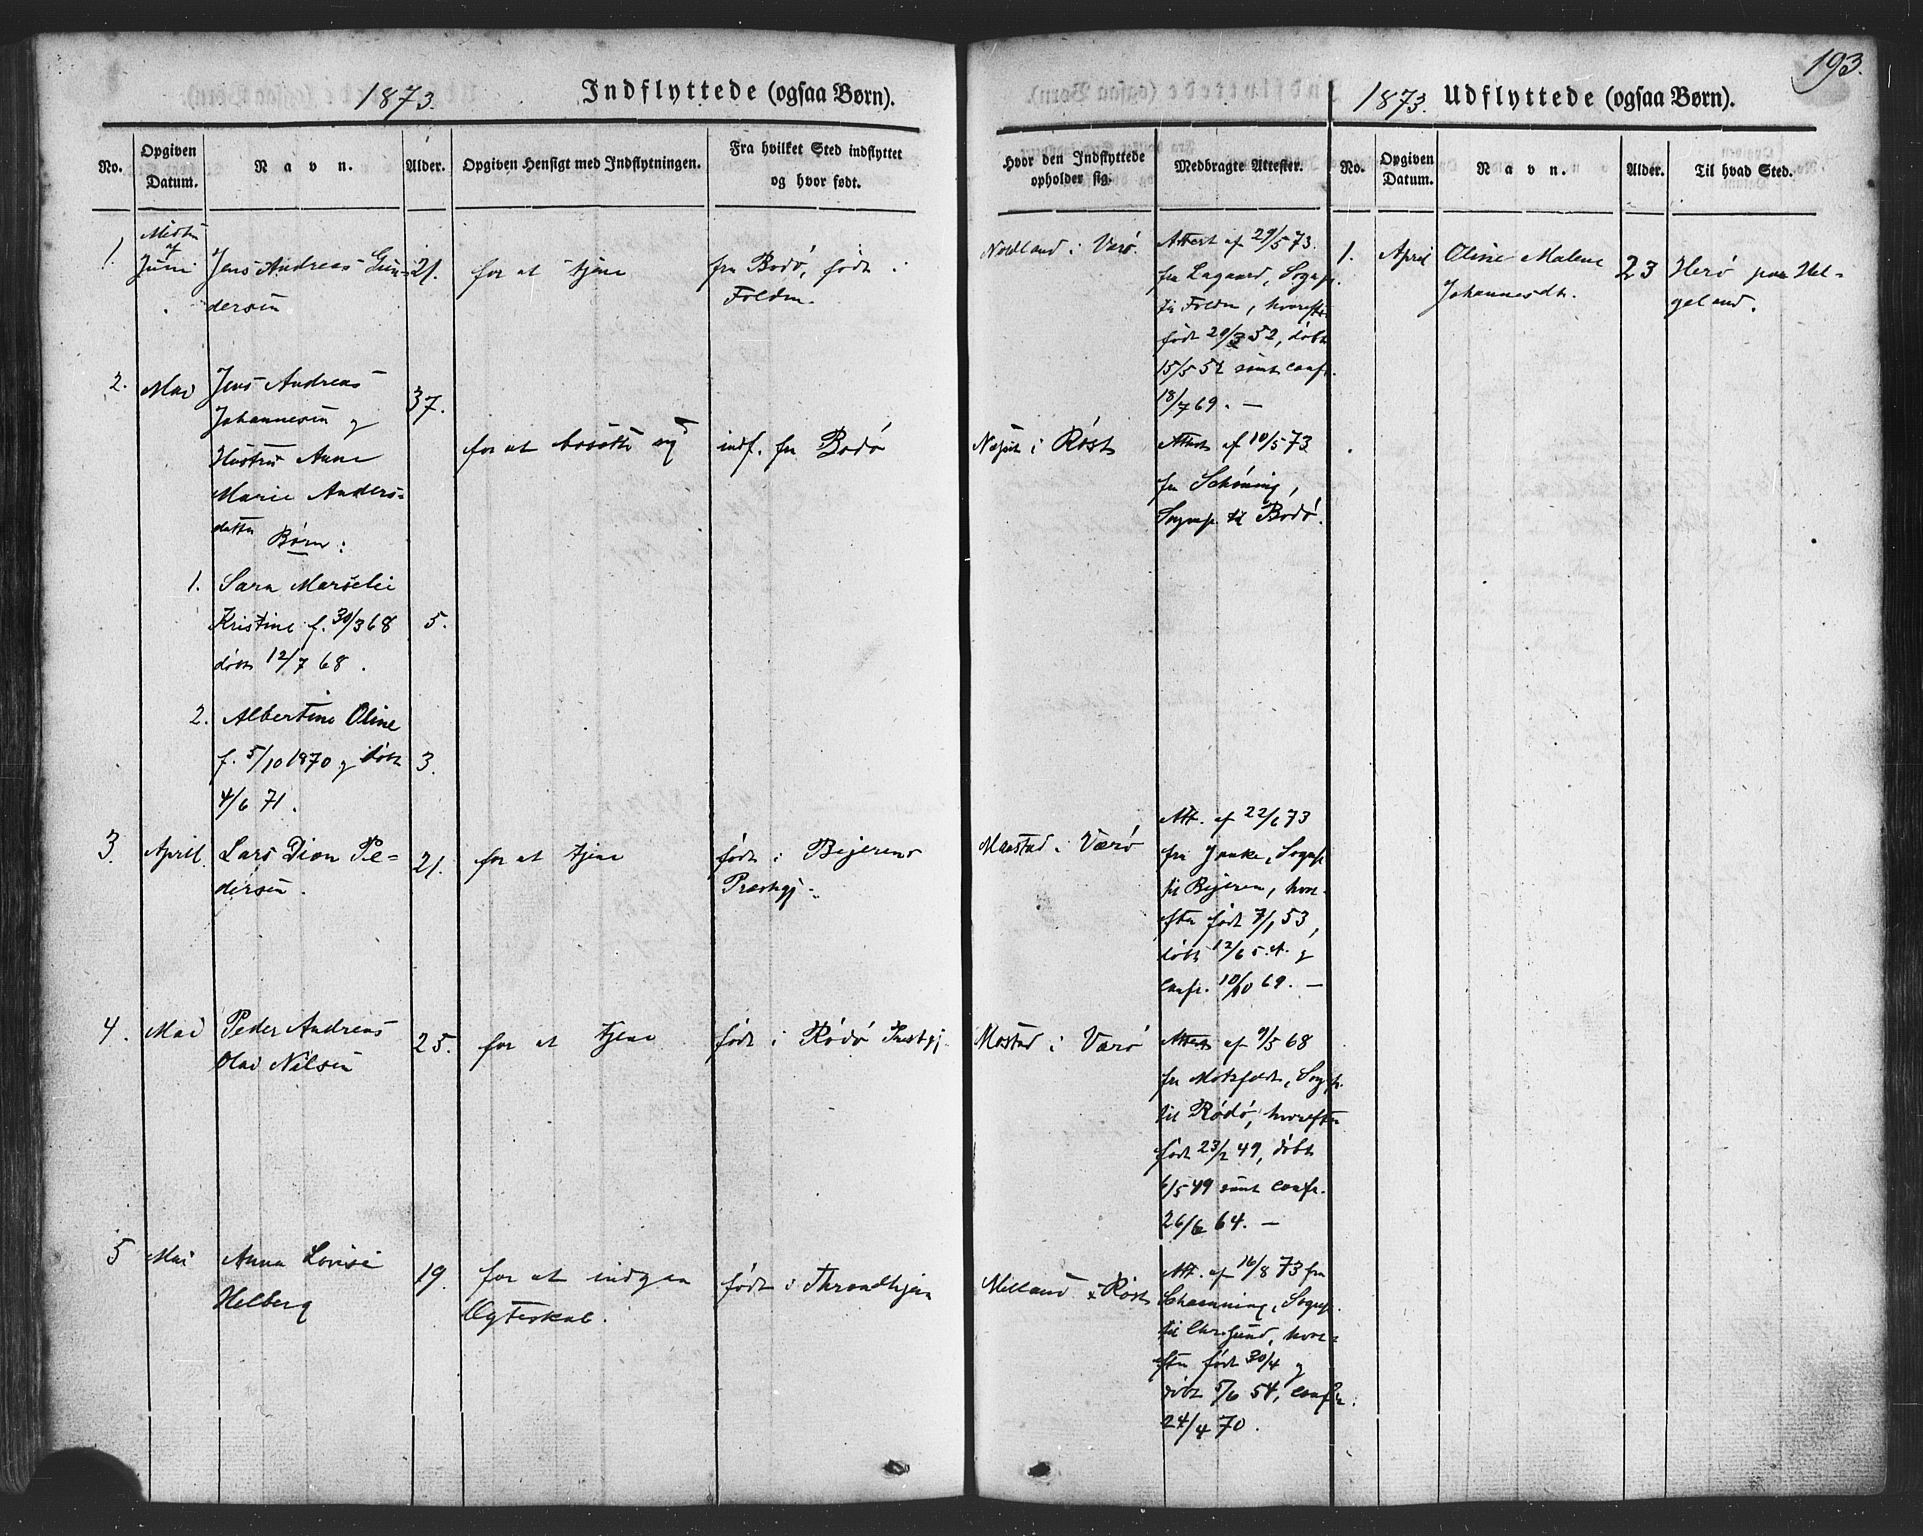 193.
1873. Indflyttede (ogsaa Børn).
1873. Udflyttede (ogsaa Børn).
No.
Opgiven
Datum.
Navn.
Alder.
Opgiven Hensigt med Indflytningen.
Fra hvilket Sted indflyttet
og hvor født.
Hvor den Indflyttede
opholder sig.
Medbragte Attester.
No.
Opgiven
Datum.
Navn.
Alder.
Til hvad Sted.
1.
af
Juni
Jens Andreas Gun-
dersen
21.
for at tjene
fra Bodø, født i
Folden.
Nordland i Værø.
Attest af 29/5 73.
fra Lagaard, Sognep.
til Folden, hvorefter
født 29/3 52, døbt
15/5 52 samt conf.
18/7 69. —
2.
Mai
Jens Andreas
Johannesen og
Hustru Anne
Marie Anders-
datter
Børn:
37.
for at bosætte sig
indf. fra Bodø
i Røst
Attest af 10/5 73
fra Schøning,
Sognep. til Bodø.
1. Sara Marselie
Kristine f. 30/3 68
døbt 12/7 68.
5.
2. Albertine Oline
f. 5/10 1870 og døbt
4/6 71.
3.
3.
April
Lars Dion Pe-
dersen.
21.
for at tjene
født i Bejerens
Præstegj.
Maastad i Værø
Att. af 22/6 73
fra Sognep.
til Bejeren, hvor-
efter født 7/1 53,
døbt 12/6 s.A. og
Conf. 10/10 69. —
4.
Mai
Peder Andreas
Olai Nilsen
25.
for at tjene
født i Rødø Præstegj.
Mostad i Værø
Attest af 9/5 68
fra Motzfeldt, Sognep.
til Rødø, hvorefter
født 23/2 49, døbt
6/5 49 samt Confr.
26/6 64. —
5
Mai
Anna Lovise
Helberg
19.
for at indgaa
Ægteskab.
født i Throndhjem
i Røst
Att. af 16/8 73 fra
Sognep.
til Chr.sund, hvor-
efter født 30/4 og
døbt 5/6 54, Conf.
24/4 70.
1.
April
Oline Malene
Johannesdt.
23
Herø paa Hel-
geland.